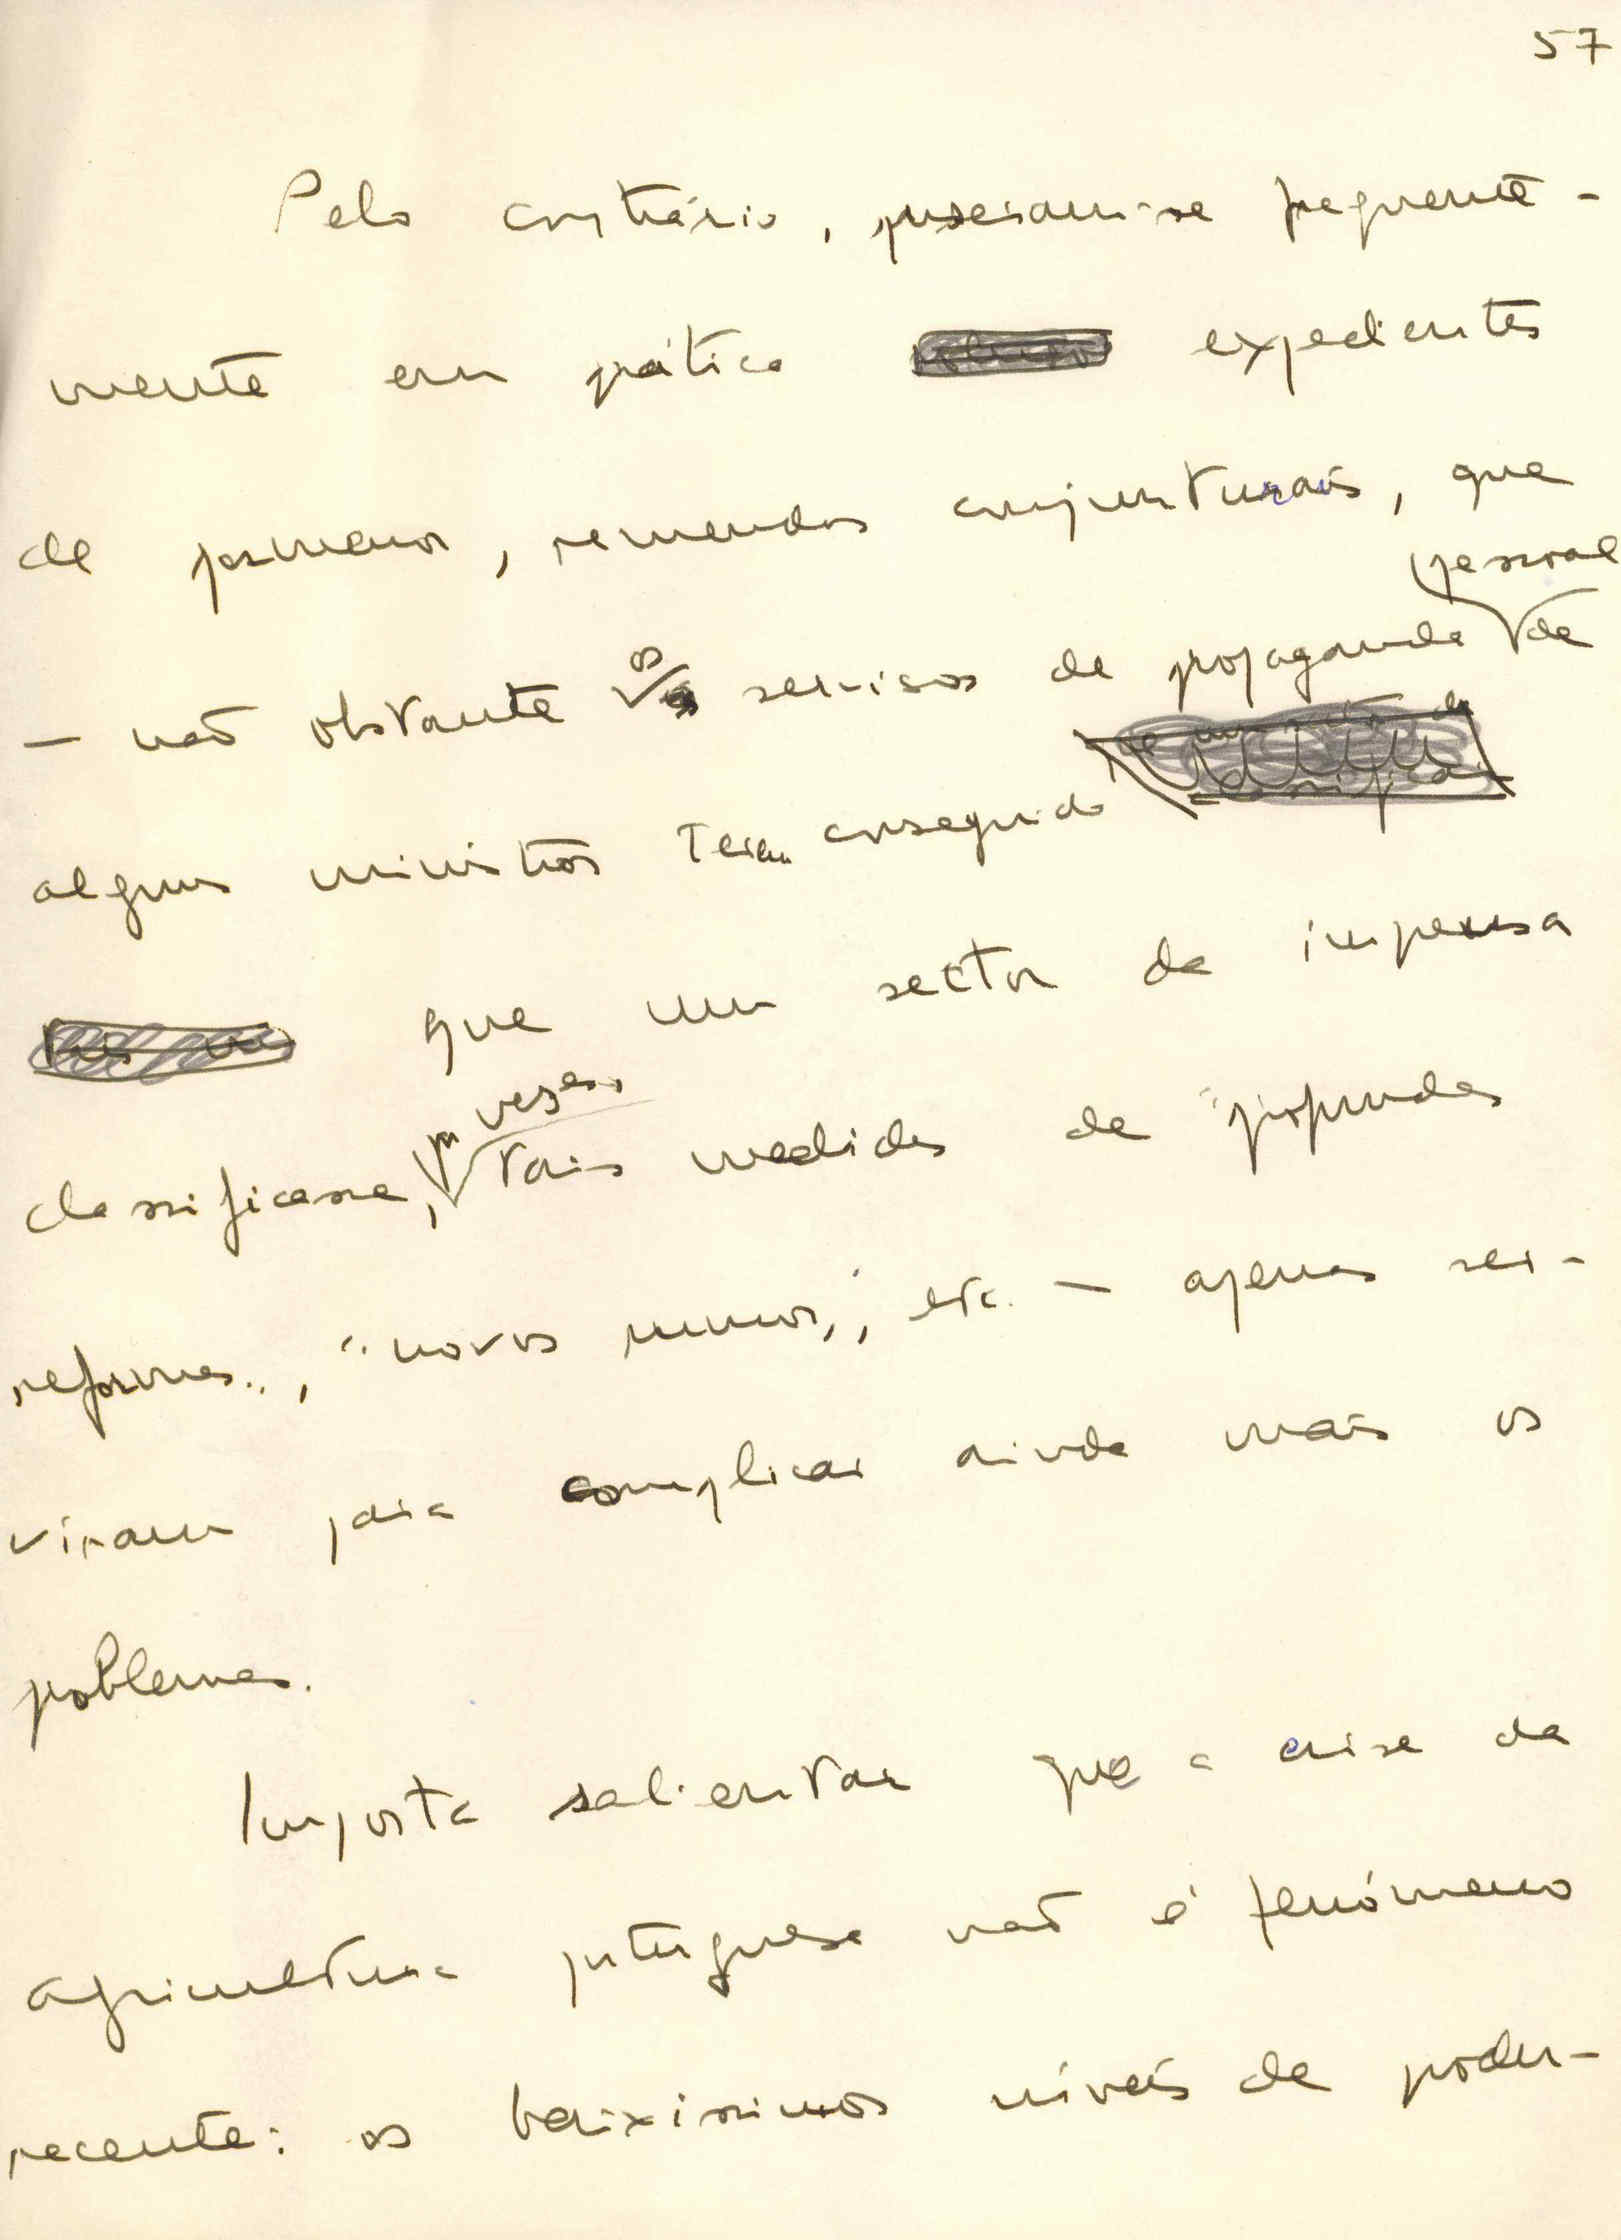 57
Pelo contrário, puseram-se frequente-
mente em prática expedientes
de pormenor, remendos conjunturais, que
pessoal
— não obstante os serviços de propaganda de
alguns ministros terem conseguido
que um sector da imprensa
por vezes,
classificasse, tais medidas de "profundas
reformas", "novos rumos", etc. — apenas ser-
viram para complicar ainda mais os
problemas.
Importa salientar que a crise da
agricultura portuguesa não é fenómeno
recente: os baixíssimos níveis de produ-